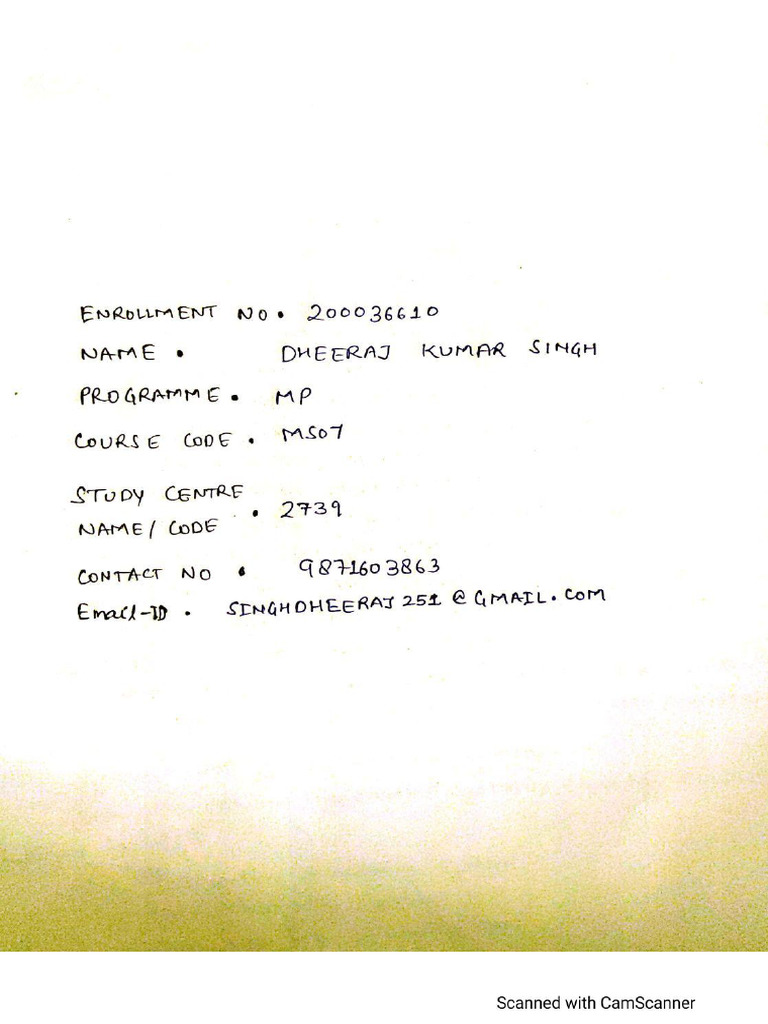 ENROLLMENT NO. 200036610
NAME . DHEERAJ KUMAR SINGH
PROGRAMME . MP
COURSE CODE . MS07
STUDY CENTRE
NAME/ CODE . 2739
CONTACT NO . 9871603863
Email-ID . SINGHDHEERAJ251@GMAIL.COM
Scanned with CamScanner